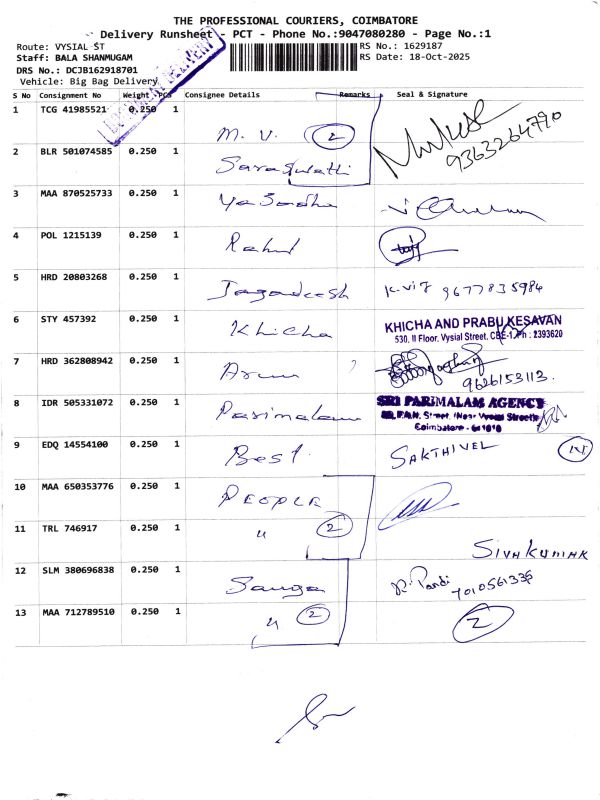 THE PROFESSIONAL COURIERS, COIMBATORE
Delivery Runsheet - PCT - Phone No.:9047080280 - Page No.:1
Route: VYSIAL ST
RS No.: 1629187
Staff: BALA SHANMUGAM
RS Date: 18-Oct-2025
DRS No.: DCJB162918701
Vehicle: Big Bag Delivery
S No Consignment No Weight PCS Consignee Details Remarks Seal & Signature
1 TCG 41985521 0.250 1 M. V. 2 9363264790
2 BLR 501074585 0.250 1 Saraswathi
3 MAA 870525733 0.250 1 Yasodha
4 POL 1215139 0.250 1 Rahul
5 HRD 20803268 0.250 1 Jagadeesh K-Vij 9677835984
6 STY 457392 0.250 1 Khicha KHICHA AND PRABU KESAVAN
530, II Floor, Vysial Street, CBE-1. Ph : 2393620
7 HRD 362808942 0.250 1 Arun 9626153113.
8 IDR 505331072 0.250 1 Parimalam SRI PARIMALAM AGENCY
Street, (Near Vysial Street)
Coimbatore - 641010
9 EDQ 14554100 0.250 1 Best. SAKTHIVEL
10 MAA 650353776 0.250 1 PEOPLE
11 TRL 746917 0.250 1 " 2 SIVAKUMAR
12 SLM 380696838 0.250 1 R. Pandi 7010561336
13 MAA 712789510 0.250 1 " 2 2